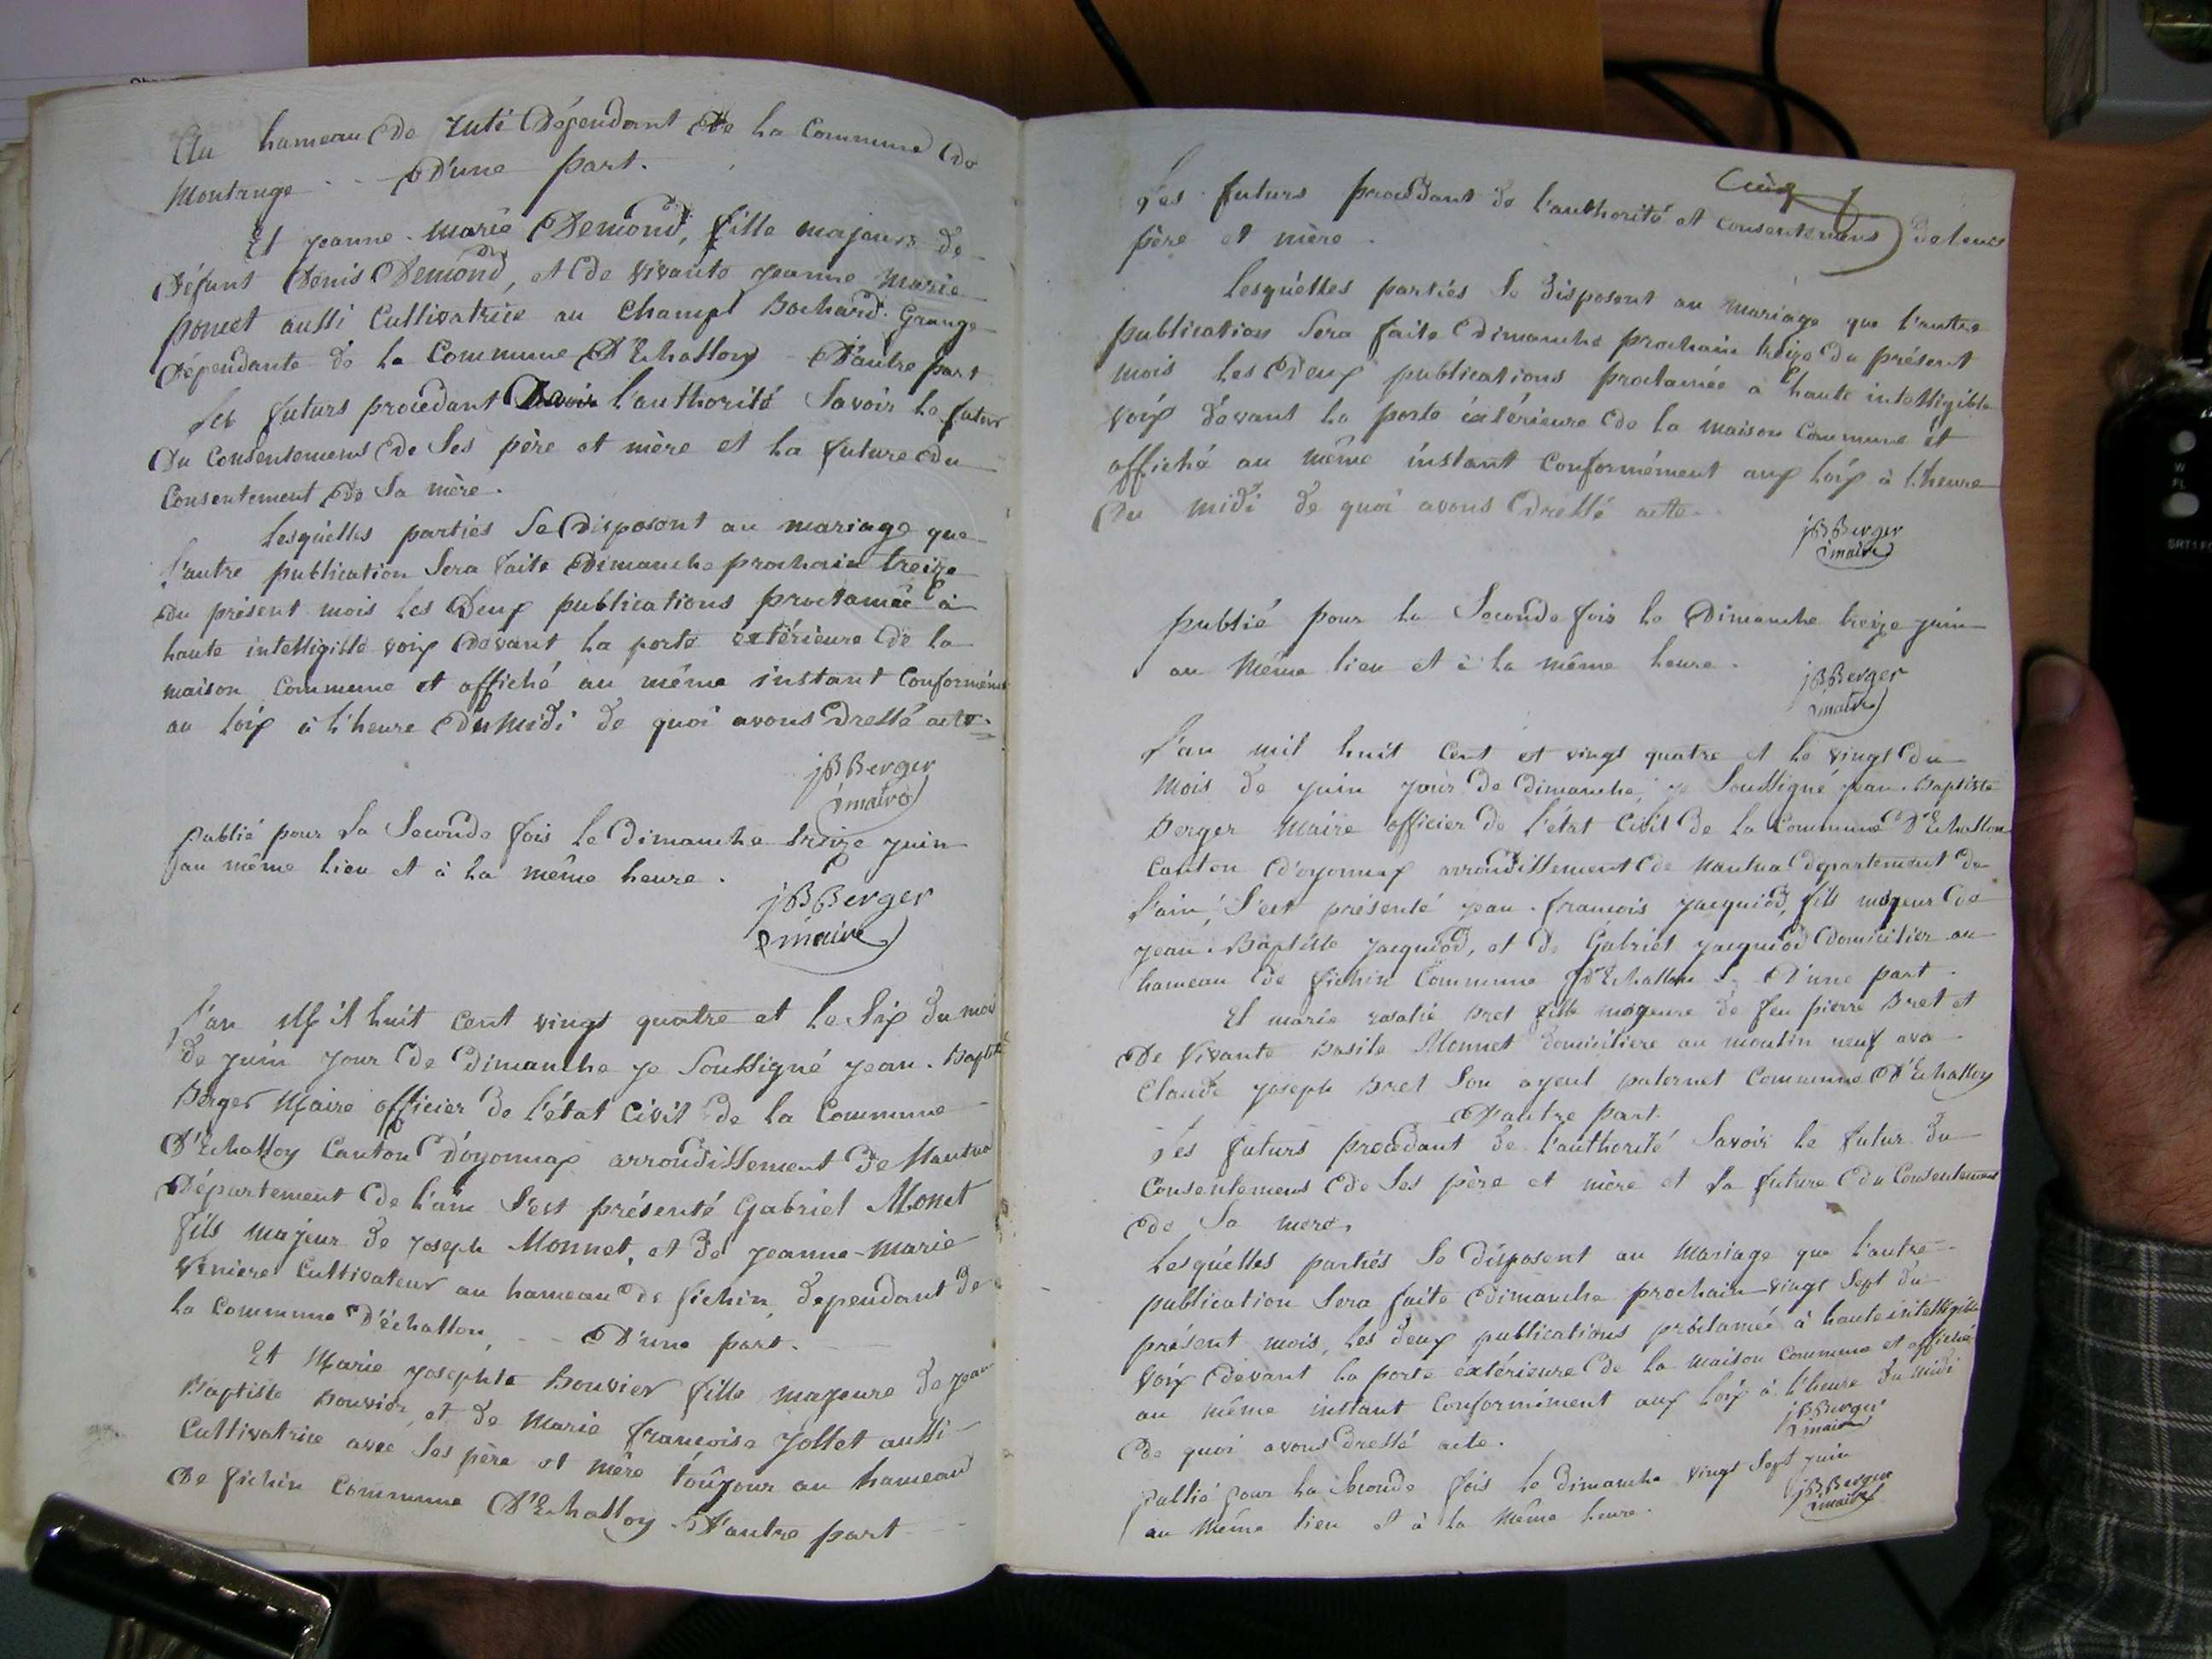 Au hameau de Ruti Dépendant De la Commune de
Montange - - D'une part.
Et jeanne-marie Demond, fille majeure de
Défunt Denis Demond, et de vivante jeanne Marie
poncet aussi Cultivatrice au Champt Bochard. Grange
Dépendante de la Commune D'Echallon - D'autre part
Les futurs procedant l'authorité Savoir le futur
Du Consentemens de Ses père et mère et la future du
Consentement de Sa mère.
Lesquelles parties Se Disposent au mariage que
l'autre publication Sera faite Dimanche prochain treize
Du présent mois les Deux publications proclamée à
haute intelligible voix devant la porte extérieure de la
maison Commune et affiché au même instant Conformément
au loix à l'heure du Midi de quoi avons Dressé acte.
jBBerger
maire
Publié pour La Seconde fois le Dimanche treize juin
au même lieu et à la même heure.
jBBerger
maire
L'an Mil huit cent vingt quatre et le Six du mois
de juin jour de Dimanche je Soussigné jean-Baptiste
Berger Maire officier de l'état Civil de la Commune
D'Echallon Canton D'oyonnax arrondissement de Nantua
Département de l'ain S'est présenté Gabriel Monet
fils majeur de joseph Monnet, et de jeanne-Marie
Vinière Cultivateur au hameau de fichin dependant de
la Commune D'échallon, - - D'une part.
Et Marie josephte Bouvier fille majeure de jean
Baptiste Bouvier, et de Marie francoise jollet aussi
Cultivatrice avec Ses père et mère toujour au hameau
De fichin Commune D'Echallon - D'autre part
Cinq
Les futurs procedant de l'authorité et Consentemens de leurs
père et mère.
Lesquélles parties Se disposent au mariage que l'autre
publication Sera faite Dimanche prochain treize Du présent
mois les Deux publications proclamée à haute intelligible
voix dévant la porte éxtérieure de la maison Commune et
affiché au même instant Conformément aux loix à l'heure
Du midi de quoi avons Dressé acte.
jBBerger
maire
publié pour la Seconde fois le Dimanche treize juin
au Même lieu et à la même heure.
jBBerger
maire
L'an mil huit Cent et vingt quatre et le vingt du
Mois de juin jour de Dimanche, je Soussigné jean-Baptiste
Berger Maire officier de l'état Civil de la Commune D'Echallon
Canton D'oyonnax arrondissement de Nantua département de
l'ain, S'est présenté jean-francois jacquiod, fils majeur de
jean-Baptiste jacquiod, et de Gabriel jacquiod Domicilier au
hameau de fichin Commune D'Echallon - D'une part.
Et marie rosalie Bret fille majeure de feu pierre Bret et
De Vivante Basile Monnet domiciliere au moulin neuf ava
Claude joseph Bret Son ayeul paternel Commune D'Echallon
D'autre part.
Les futurs procedant de l'authorité Savoir le futur du
Consentemens de Ses père et mère et La future du Consentement
de Sa mere,
Lesquélles parties Se disposent au Mariage que l'autre
publication Sera faite Dimanche prochain vingt Sept du
présent mois, les deux publications proclamée à haute intelligible
voix devant la porte éxtérieure de la Maison Commune et affiché
au même instant Conformément aux loix à l'heure du midi
De quoi avons Dressé acte.
jBBerger
maire
publié pour la Seconde fois le dimanche vingt Sept juin
au Même lieu et à la Même heure.
jBBerger
maire